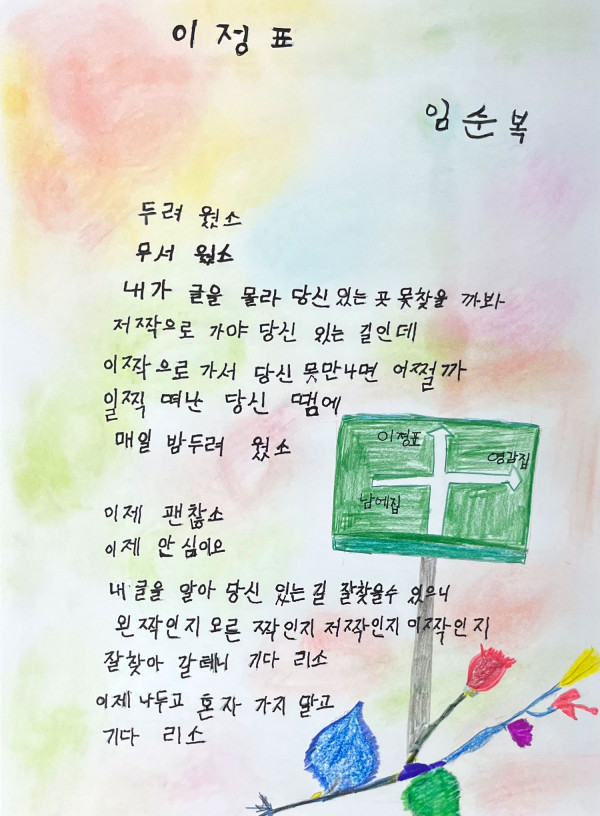 이정표
임순복
두려 웠소
무서 웠소
내가 글을 몰라 당신있는 곳 못찾을 까봐
저짝으로 가야 당신 있는 길인데
이짝으로 가서 당신 못만나면 어쩔까
일찍 떠난 당신 땜에
매일 밤두려 웠소
이정표
영감집
남에집
이제 괜찮소
이제 안심이요
내글을 알아 당신 있는길 잘찾을수 있으니
왼짝인지 오른 짝인지 저짝인지 이짝인지
잘찾아 갈테니 기다 리소
이제 나두고 혼자 가지 말고
기다 리소